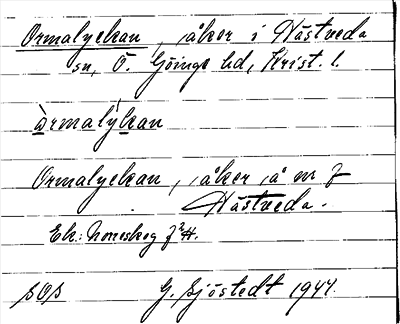 Ormalyckan, åker i Nästveda
sn, Ö. Göinge hd, Krist. l.
àrmalýkan
Ormalyckan, åker å nr 7
Hästveda.
Ek:
SOS G. Sjöstedt 1947.